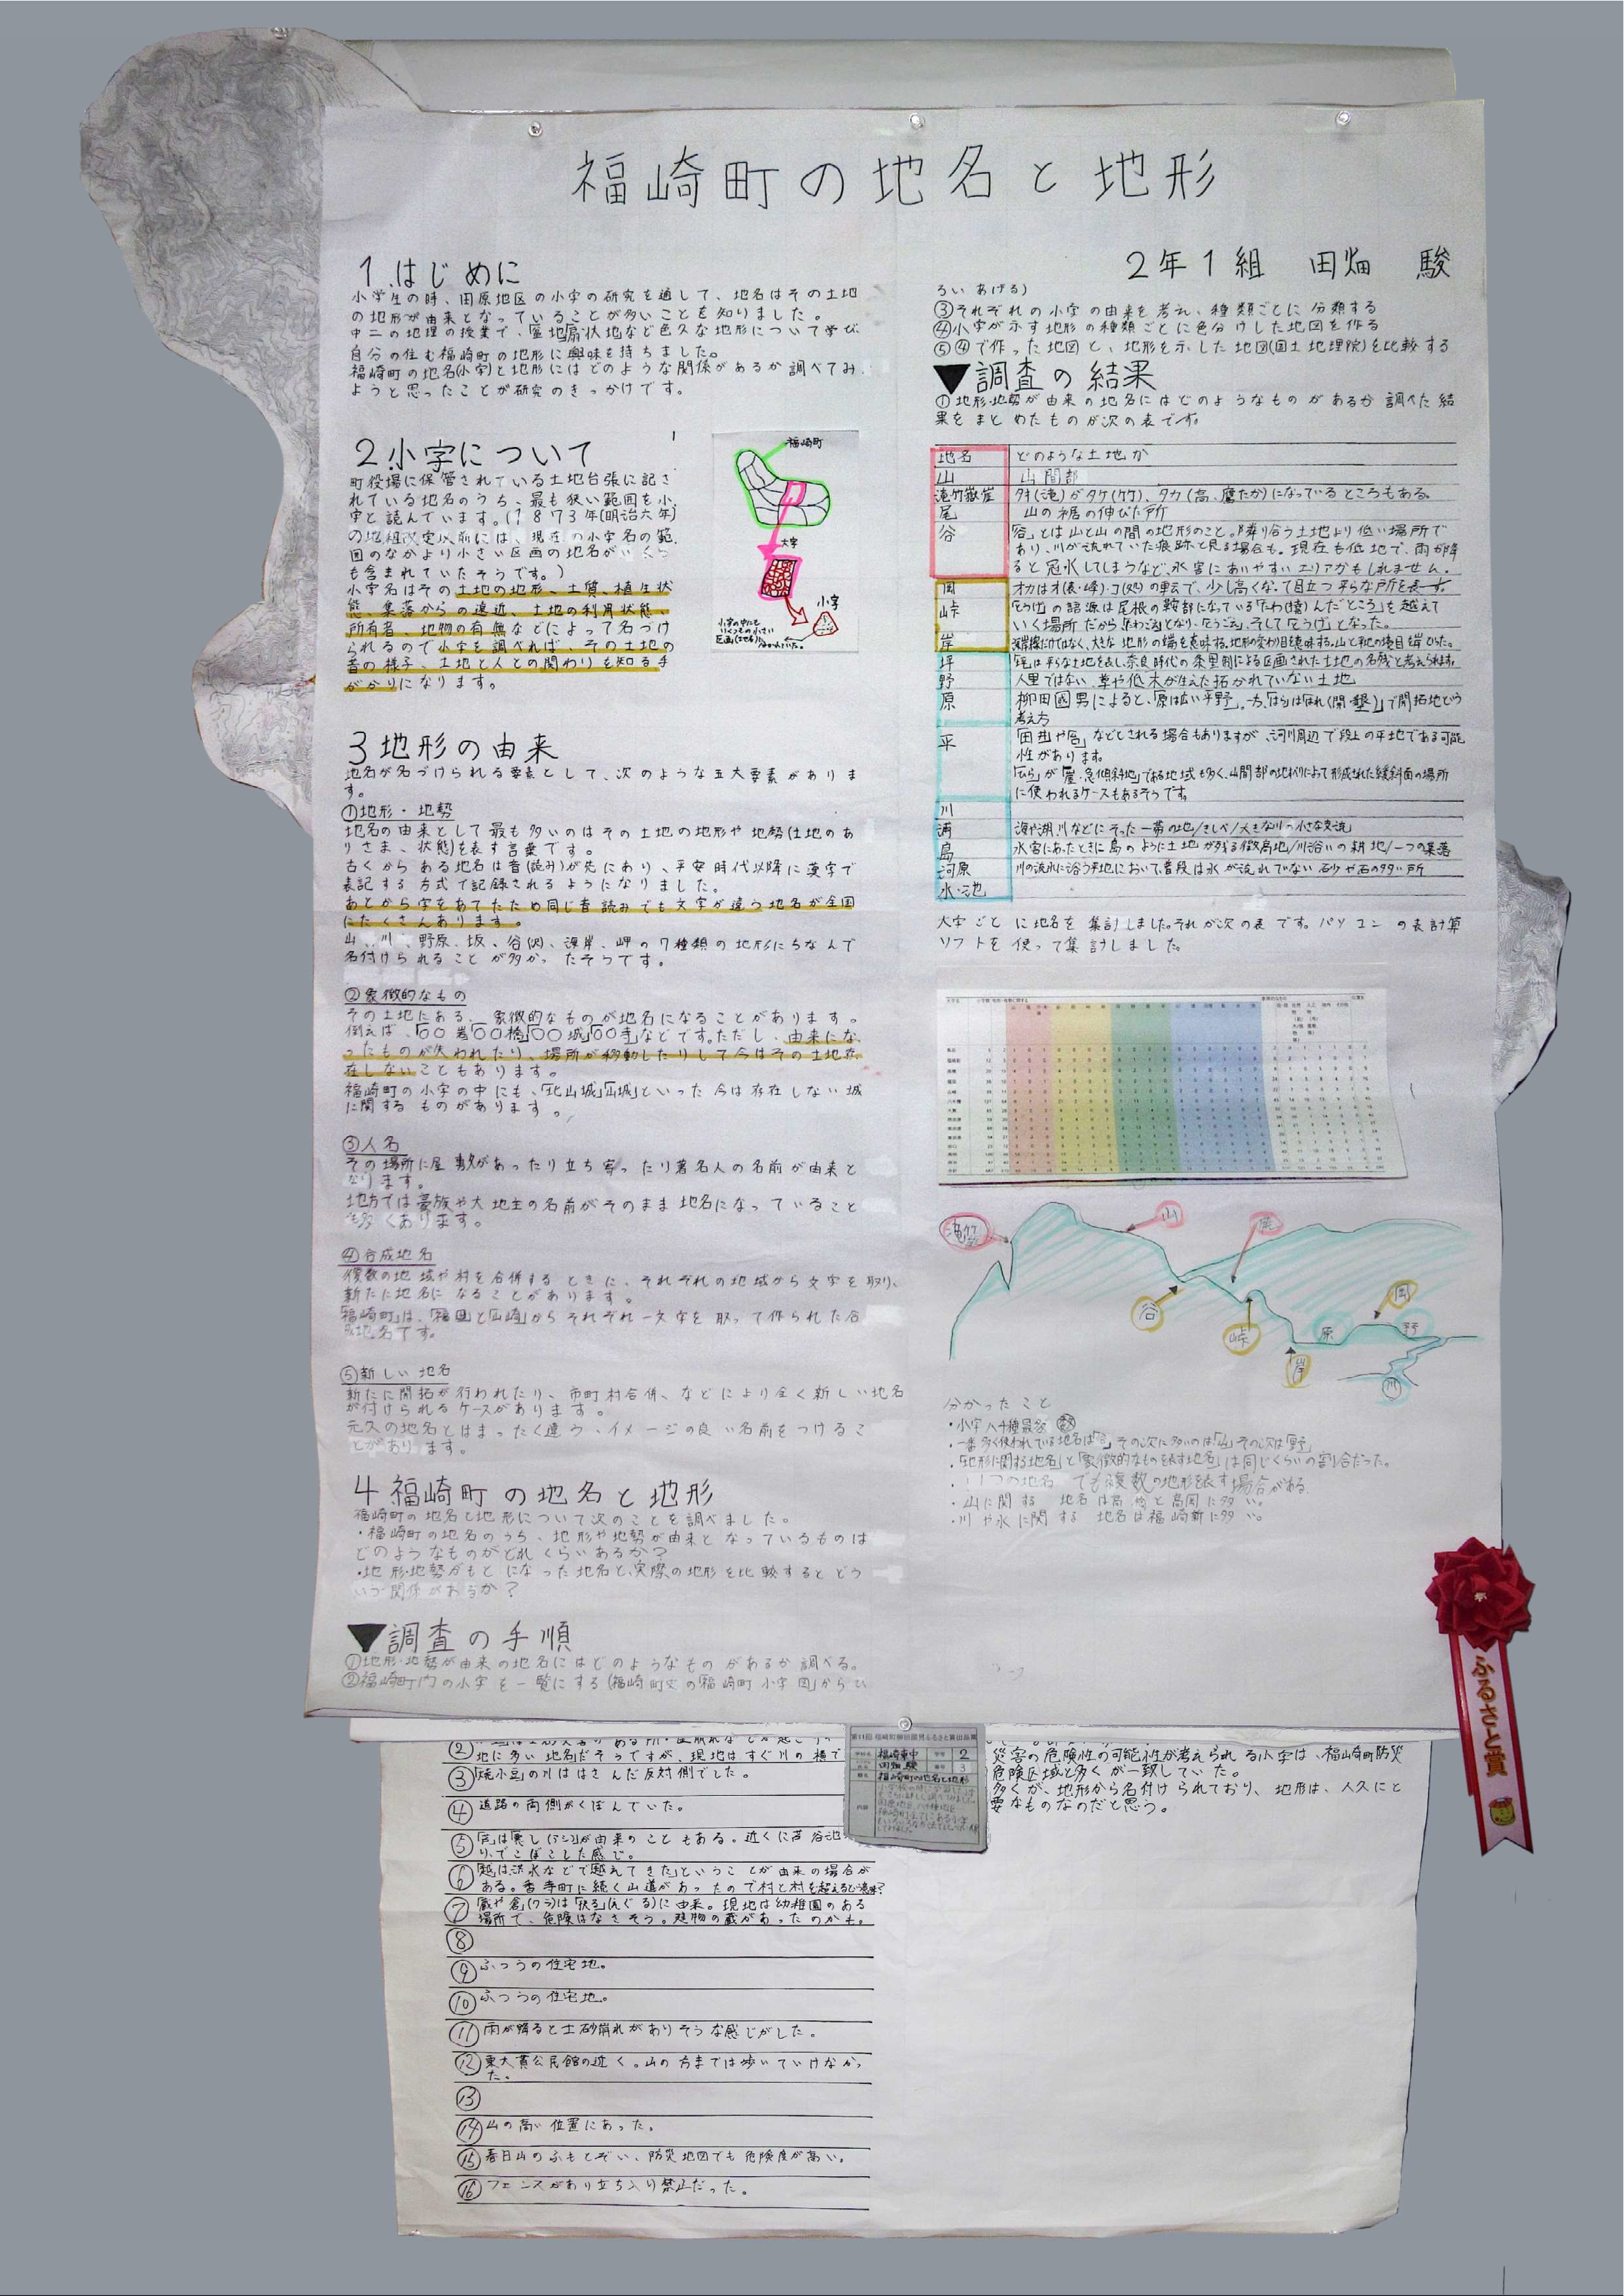 福崎町の地名と地形
2年1組 田畑 駿
1.はじめに
小学生の時、田原地区の小字の研究を通して、地名はその土地
の地形が由来となっていることが多いことを知りました。
中二の地理の授業で、盆地扇状地など色々な地形について学び
自分の住む福崎町の地形に興味を持ちました。
福崎町の地名(小字)と地形にはどのような関係があるか調べてみ
ようと思ったことが研究のきっかけです。
2.小字について
町役場に保管されている土地台張に記さ
れている地名のうち、最も狭い範囲を小
字と読んでいます。(1873年(明治六年)
の地租改定以前には、現在の小字名の範
囲のなかより小さい区画の地名がいくら
も含まれていたそうです。)
小字名はその土地の地形、土質、植生状
態、集落からの遠近、土地の利用状態、
所有者、地物の有無などによって名づけ
られるので小字を調べれば、その土地の
昔の様子、土地と人との関わりを知る手
がかりになります。
福崎町
大字
小字
小字の中にも
いくつもの小さい
区画(はぜ)に
分かれていた。
3地形の由来
地名が名づけられる要素として、次のような五大要素がありま
す。
①地形・地勢
地名の由来として最も多いのはその土地の地形や地勢(土地のあ
りさま、状態)を表す言葉です。
古くからある地名は音(読み)が先にあり、平安時代以降に漢字で
表記する方式で記録されるようになりました。
あとから字をあてたため同じ音読みでも文字が違う地名が全国
にたくさんあります。
山、川、野原、坂、谷(沢)、海岸、岬の7種類の地形にちなんで
名付けられることが多かったそうです。
②象徴的なもの
その土地にある、象徴的なものが地名になることがあります。
例えば、「〇〇岩」「〇〇橋」「〇〇城」「〇〇寺」などです。ただし、由来にな
ったものが失われたり、場所が移動したりして今はその土地存
在しないこともあります。
福崎町の小字の中にも、「北山城」「山城」といった今は存在しない城
に関するものがあります。
③人名
その場所に屋敷があったり立ち寄ったり著名人の名前が由来と
なります。
地方では豪族や大地主の名前がそのまま地名になっていること
も多くあります。
④合成地名
複数の地域や村を合併するときに、それぞれの地域から文字を取り、
新たに地名になることがあります。
「福崎町」は、「福田」と「山崎」からそれぞれ一文字を取って作られた合
成地名です。
⑤新しい地名
新たに開拓が行われたり、市町村合併、などにより全く新しい地名
が付けられるケースがあります。
元々の地名とはまったく違う、イメージの良い名前をつけるこ
とがあります。
4福崎町の地名と地形
福崎町の地名と地形について次のことを調べました。
・福崎町の地名のうち、地形や地勢が由来となっているものは
どのようなものがどれくらいあるか?
・地形・地勢がもとになった地名と、実際の地形を比較するとどう
いう関係があるか?
▼調査の手順
①地形・地勢が由来の地名にはどのようなものがあるか調べる。
②福崎町内の小字を一覧にする(福崎町史の「福崎町小字図」からひ
ろいあげる)
③それぞれの小字の由来を考え、種類ごとに分類する
④小字が示す地形の種類ごとに色分けした地図を作る
⑤④で作った地図と、地形を示した地図(国土地理院)を比較する
▼調査の結果
①地形・地勢が由来の地名にはどのようなものがあるか調べた結
果をまとめたものが次の表です。
地名 どのような土地か
山 山間部
滝竹嶽崔 タキ(滝)がタケ(竹)、タカ(高、鷹たか)になっているところもある。
尾 山の裾の伸びた所
谷 「谷」とは山と山の間の地形のこと。「隣り合う土地より低い場所で
あり、川が流れていた痕跡と見る場合も。現在も低地で、雨が降
ると冠水してしまうなど、水害にあいやすいエリアかもしれません。
岡 オカはオ(表・峰)・コ(処)の転で、少し高くなって目立つ平らな所を表す。
峠 「とうげ」の語源は尾根の鞍部になっている「たわ(撓)んだところ」を越えて
いく場所だから「たわごえ」となり、「とうごえ」、そして「とうげ」となった。
岸 海岸線だけではなく、大きな地形の端を意味する。地形の変わり目を意味する。山と平地の境目を岸といった。
坪 「坪」は平らな土地を表し、奈良時代の条里制による区画された土地の名残と考えられます。
野 人里ではない、草や低木が生えた拓かれていない土地
原 柳田國男によると、「原は広い平野」。一方、「はら」は「はれ(開・墾)」で開拓地という
考え方
平 「田畑や邑」などとされる場合もありますが、河川周辺で段上の平地である可能
性があります。
「ひら」が「崖・急傾斜地」である地域も多く、山間部の地すべりによって形成された緩斜面の場所
に使われるケースもあるそうです。
川
浦 海や湖、川などにそった一帯の地/きしべ/大きな川の小さな支流
島 水害にあったときに島のように土地が残る微高地/川沿いの耕地/一つの集落
河原 川の流水に沿う平地において、普段は水が流れていない砂や石の多い所
水・池
大字ごとに地名を集計しました。それが次の表です。パソコンの表計算
ソフトを使って集計しました。
滝竹
山
尾
谷
峠
岸
原
岡
野
川
分かったこと
・小字八千種最多
・一番多く使われている地名は「谷」、その次に多いのは「山」その次は「野」
・「地形に関する地名」と「象徴的なものを表す地名」は同じくらいの割合だった。
・1つの地名でも複数の地形を表す場合がある。
・山に関する地名は高橋と高岡に多い。
・川や水に関する地名は福崎新に多い。
② 地に多い地名だそうですが、現地はすぐ川の横で
③「焼小豆」の川ははさんだ反対側でした。
④道路の両側がくぼんでいた。
⑤「芦」は「悪し(アシ)」が由来のこともある。近くに苦谷池
り、でこぼこした感じ。
⑥「越」は「洪水などで越えてきた」ということが由来の場合が
ある。香寺町に続く山道があったので村と村を超えるという意味?
⑦「蔵や倉(クラ)」は「抉る」(えぐる)に由来。現地は幼稚園のある
場所で、危険はなさそう。建物の蔵があったのかも。
⑧
⑨ふつうの住宅地。
⑩ふつうの住宅地。
⑪雨が降ると土砂崩れがありそうな感じがした。
⑫東大貫公民館の近く。山の方までは歩いていけなかっ
た。
⑬
⑭山の高い位置にあった。
⑮春日山のふもとぞい、防災地図でも危険度が高い。
⑯フェンスがあり立ち入り禁止だった。
福崎東中 2
田畑 駿 3
福崎町の地名と地形
災害の危険性の可能性が考えられる小字は、福崎町防災
危険区域と多くが一致していた。
多くが、地形から名付けられており、地形は、人々にと
要なものなのだと思う。
ふるさと賞